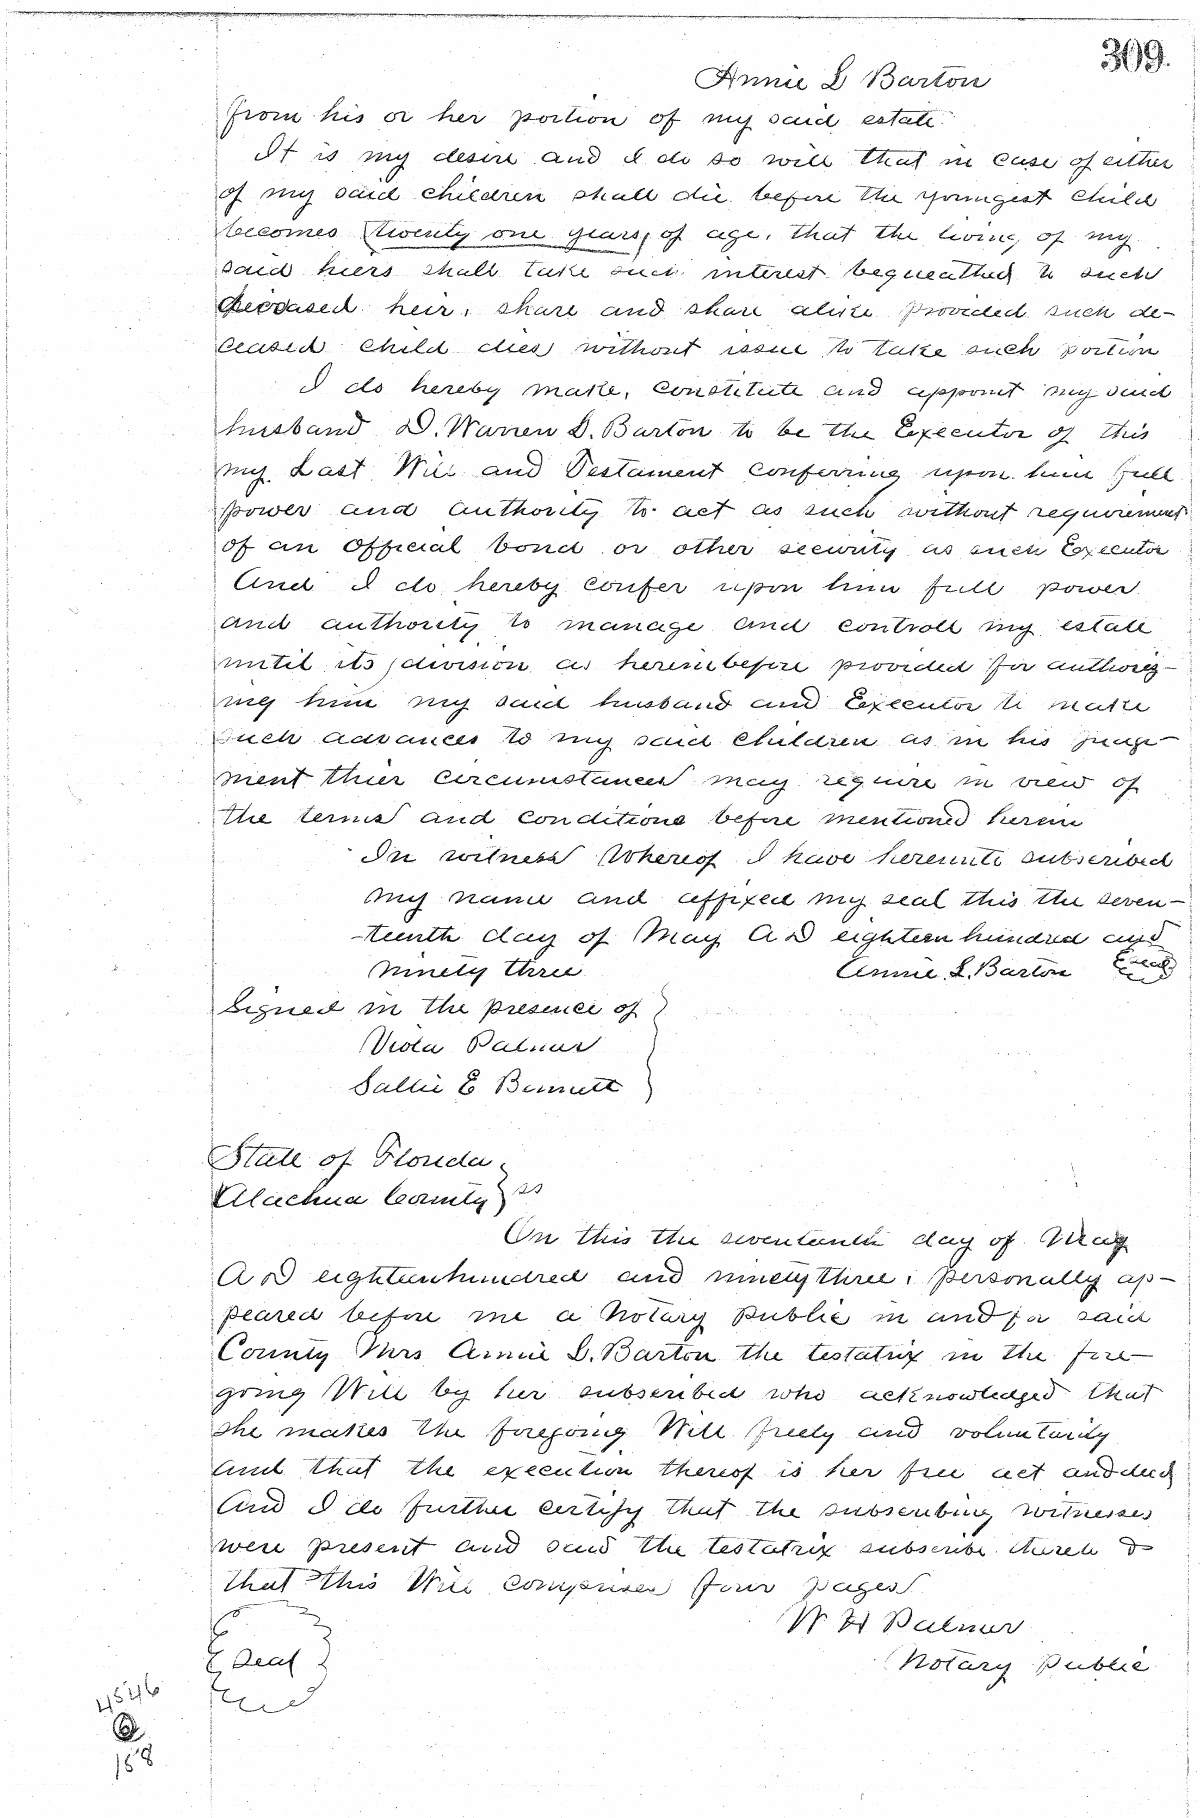 309.
Annie L Barton
from his or her portion of my said estate.
It is my desire and I do so will that in case of either
of my said children shall die before the youngest child
becomes (twenty one years) of age, that the living of my
said hiers shall take such interest bequeathed to such
deceased heir, share and share alike provided such de-
ceased child dies without issue to take such portion
I do hereby make, constitute and appoint my said
husband D. Warren D. Barton to be the Executor of this
my Last Will and Testament conferring upon him full
power and authority to act as such without requirement
of an Official bond or other security as such Executor
And I do hereby confer upon him full power
and authority to manage and controll my estate
until its division as hereinbefore provided for authoriz-
ing him my said husband and Executor to make
such advances to my said children as in his judge-
ment thier circumstances may require in view of
the terms and conditions before mentioned herein
In witness Whereof I have hereunto subscribed
my name and affixed my seal this the seven-
-teenth day of May A D eighteen hundred and
ninety three Annie L. Barton seal
Signed in the presence of
Viola Palmer
Sallie E Bennett
State of Florida
Alachua County ss
On this the seventeenth day of May
A D eighteenhundred and ninety three, personally ap-
peared before me a Notary Public in and for said
County Mrs Annie L. Barton the testatrix in the fore-
going Will by her subscribed who acknowledged that
she makes the foregoing Will freely and voluntarily
and that the execution thereof is her free act and deed
And I do further certify that the subscribing witnesses
were present and said the testatrix subscribe thereto &
that this Will comprises four pages
W H Palmer
seal Notary Public
4546
158